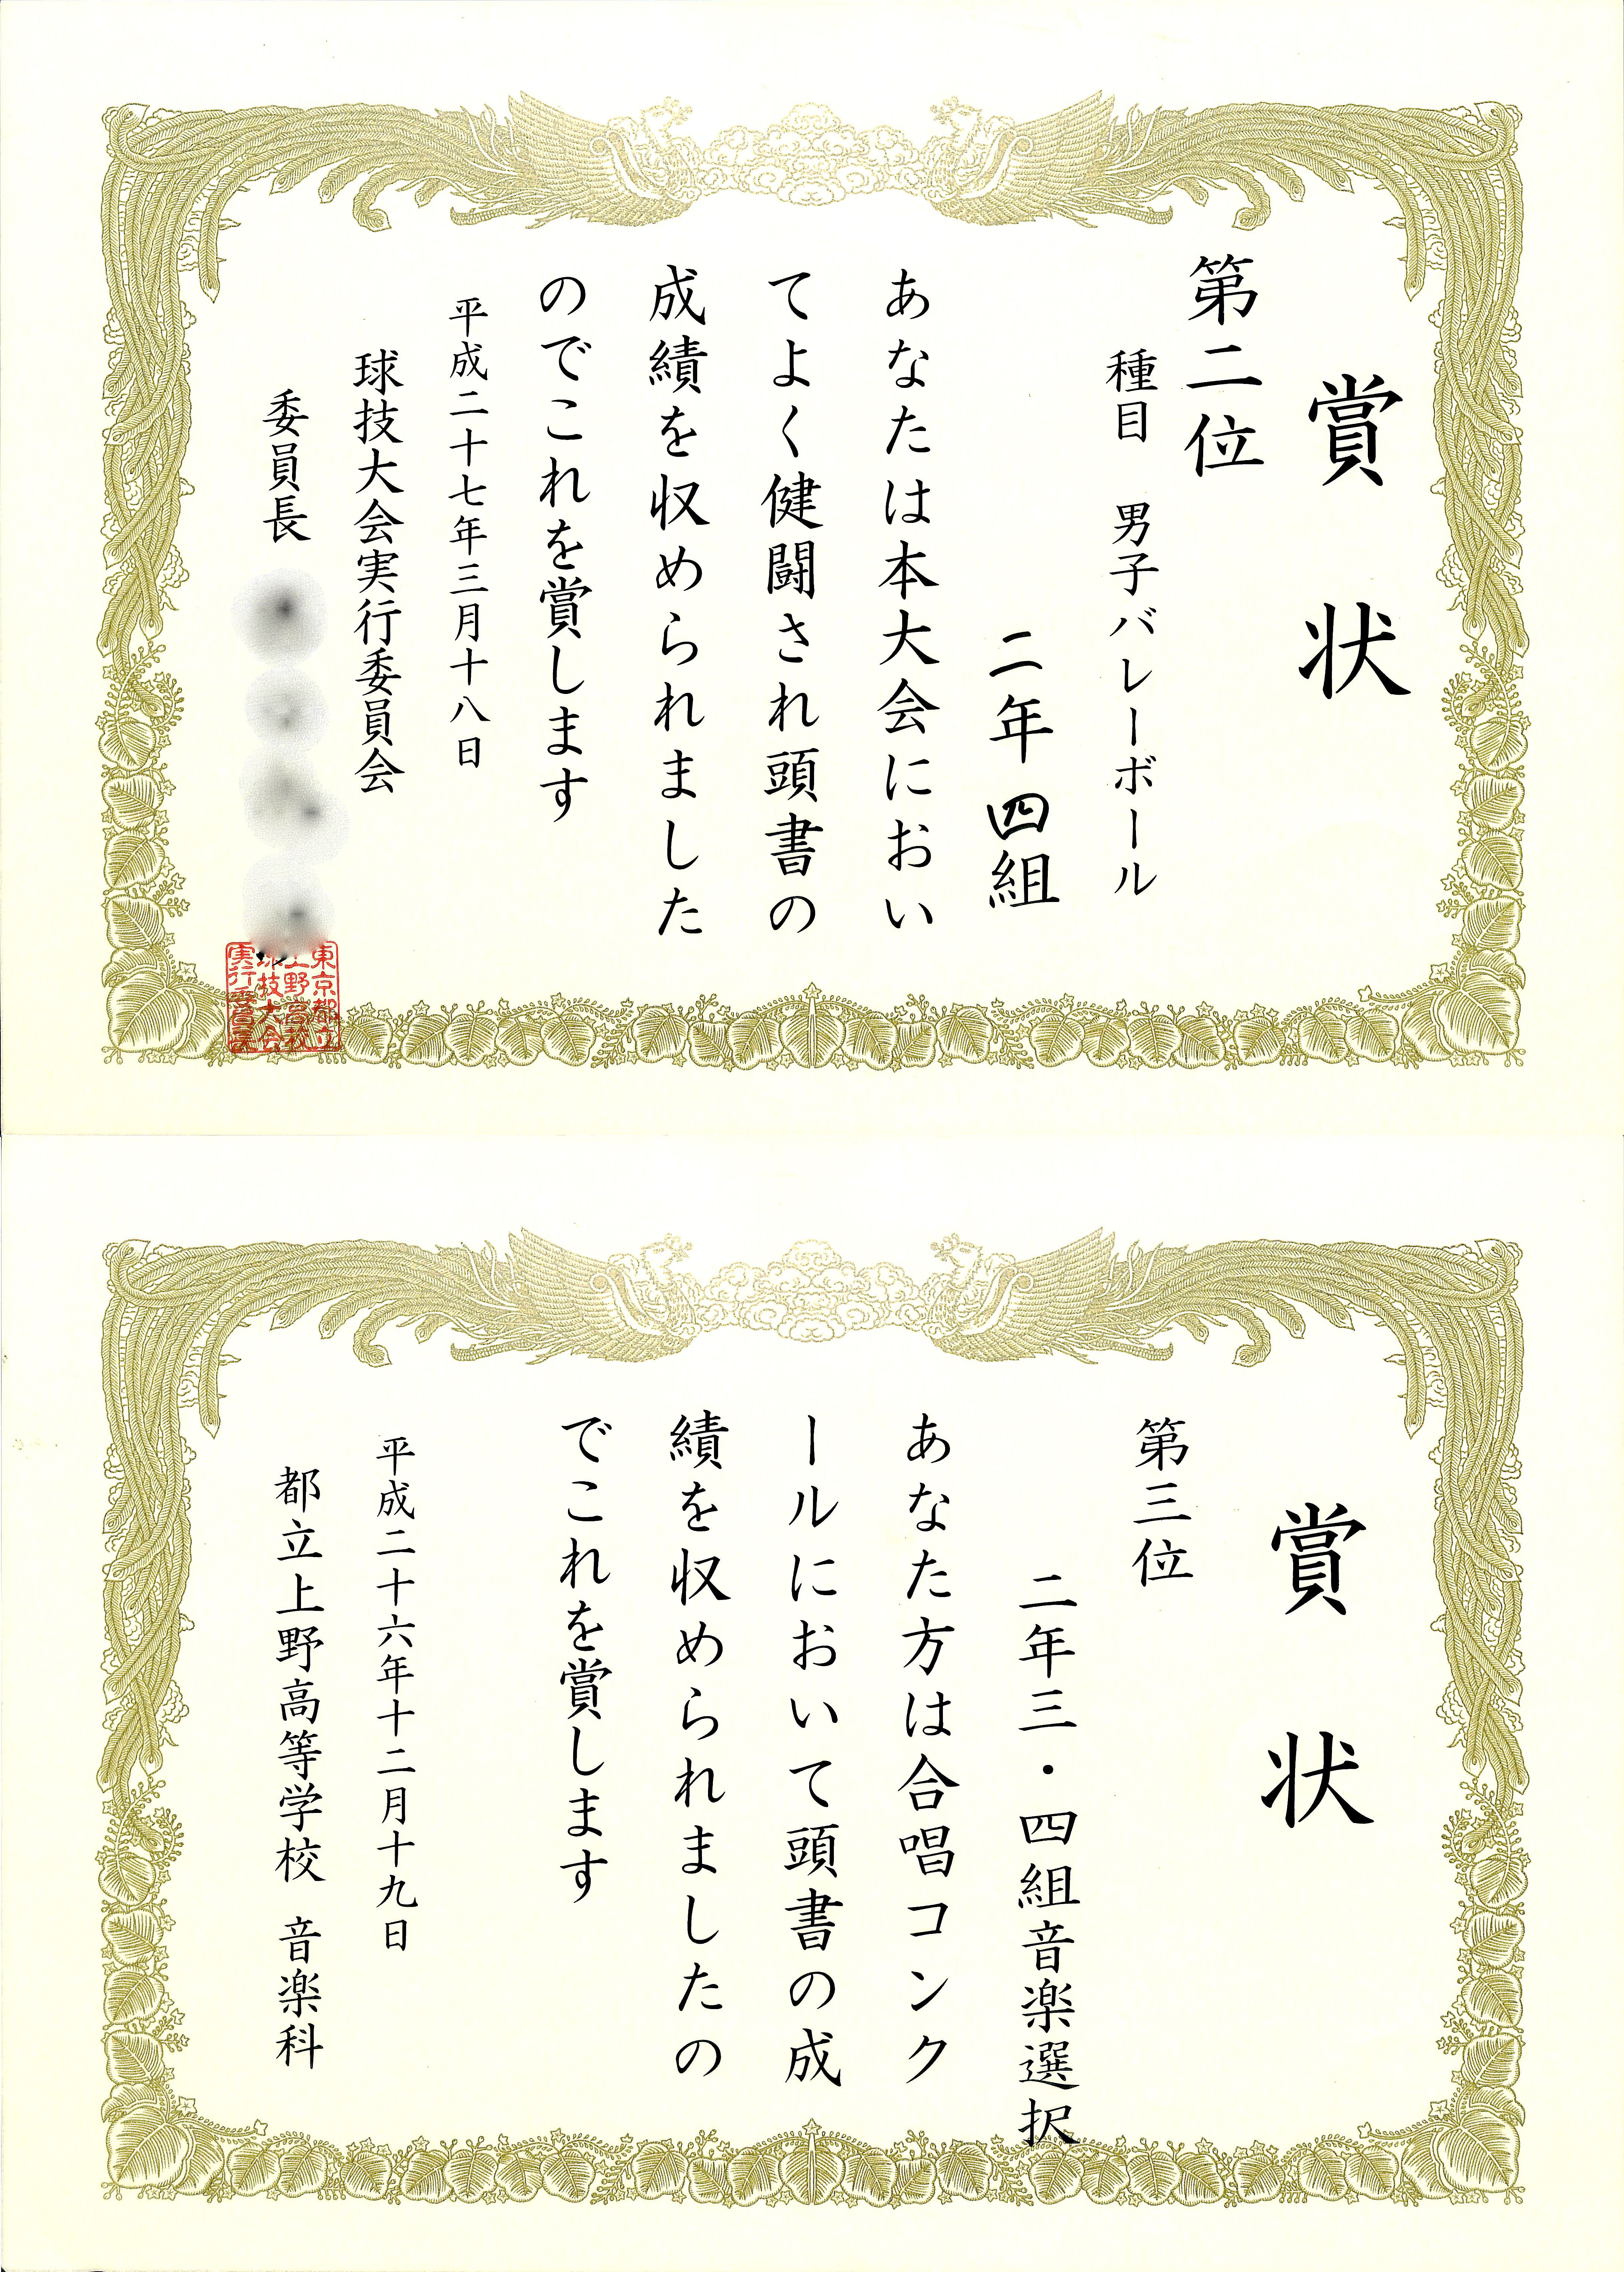 賞状
第二位
種目 男子バレーボール
二年四組
あなたは本大会におい
てよく健闘され頭書の
成績を収められました
のでこれを賞します
平成二十七年三月十八日
球技大会実行委員会
委員長
東京都立
上野高校
球技大会
実行委員長
賞状
第三位
二年三・四組音楽選択
あなた方は合唱コンク
ールにおいて頭書の成
績を収められましたの
でこれを賞します
平成二十六年十二月十九日
都立上野高等学校 音楽科